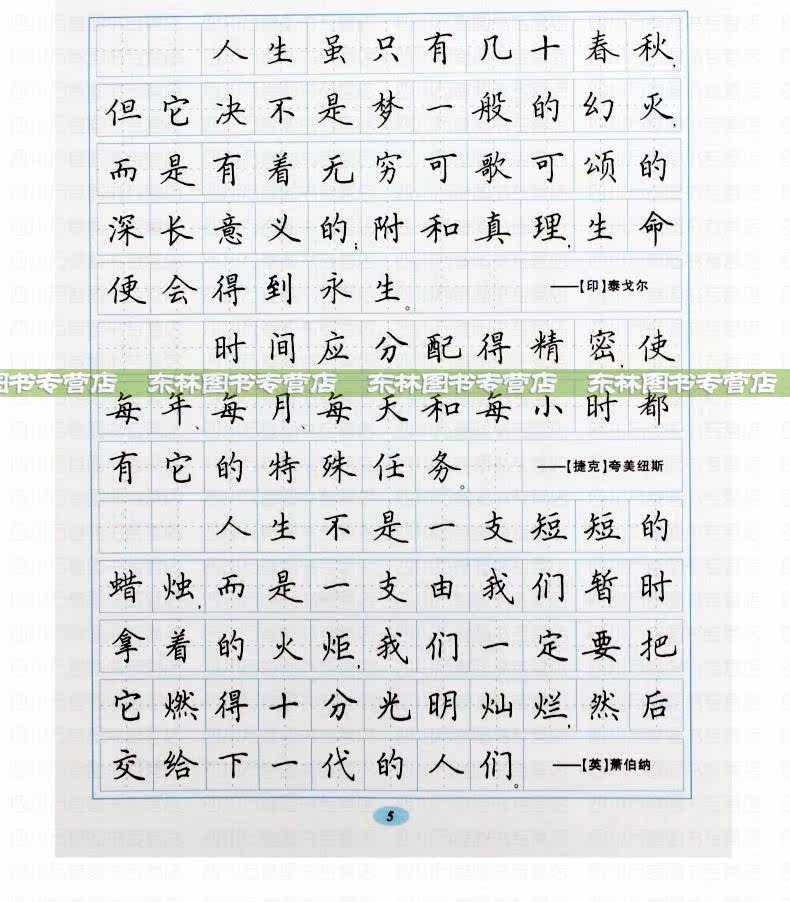 人生虽只有几十春秋,
但它决不是梦一般的幻灭,
而是有着无穷可歌可颂的
深长意义的;附和真理,生命
便会得到永生。 ——【印】泰戈尔
时间应分配得精密,使
图书专营店 东林图书专营店 东林图书专营店 东林图书专营店
每年、每月、每天和每小时都
有它的特殊任务。 ——【捷克】夸美纽斯
人生不是一支短短的
蜡烛,而是一支由我们暂时
拿着的火炬,我们一定要把
它燃得十分光明灿烂,然后
交给下一代的人们。 ——【英】萧伯纳
5